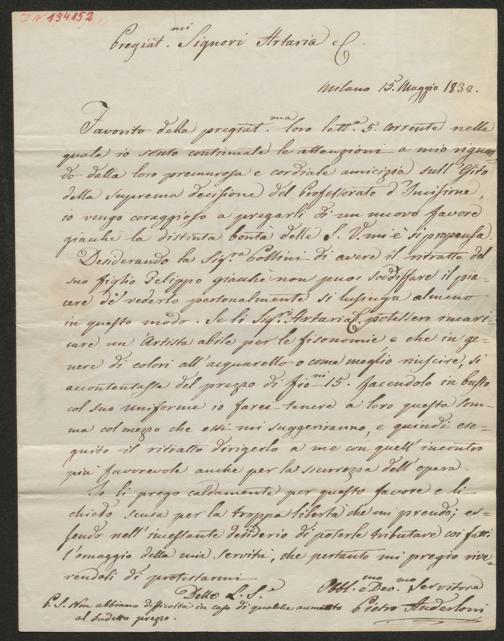 I.N. 194852
Pregiat.mi Signori Artaria & C.
Milano 15. Maggio 1832.
Favorito della pregiat.ma loro lett.a 5. corrente nella
quale io sento continuate le attenzioni a mio riguar=
do dalla loro premurosa e cordiale amicizia sull'Esito
della Suprema decisione del Professorato d'Incisione,
io vengo coraggioso a pregarli di un nuovo favore
giacchè la distinta bontà delle S. V. mi è sì propensa.
Desiderando la Sig.ra Collini di avere il ritratto del
suo figlio Felippo giacchè non puol soddisfare il pia=
cere di vederlo personalmente si lusinga almeno
in questo modo. Se li Sig.ri Artaria C. potessero incari=
care un Artista abile per le fisonomie e che in ge=
nere di colori all'acquarello o come meglio riuscire, si
accontentasse del prezzo di fio.ni 15. facendolo in busto
col suo uniforme io farei tenere a loro questa som=
ma col mezzo che essi mi suggeriranno, e quindi ese=
guito il ritratto dirigerlo a me con quell'incontro
più favorevole anche per la sicurezza dell'opera.
Io li prego caldamente per questo favore e li
chiedo scusa per la troppa libertà che mi prendo; es=
sendo nell'incessante desiderio di poterle tributare coi fatti
l'omaggio della mia servitù, che pertanto mi pregio rive=
rendoli di protestarmi
Delle L. S.e
Obbl.mo e Dev.mo Servitore
Pietro Anderloni
P.S. Non abbiano difficoltà in caso di qualche aumento
al sudetto prezzo.